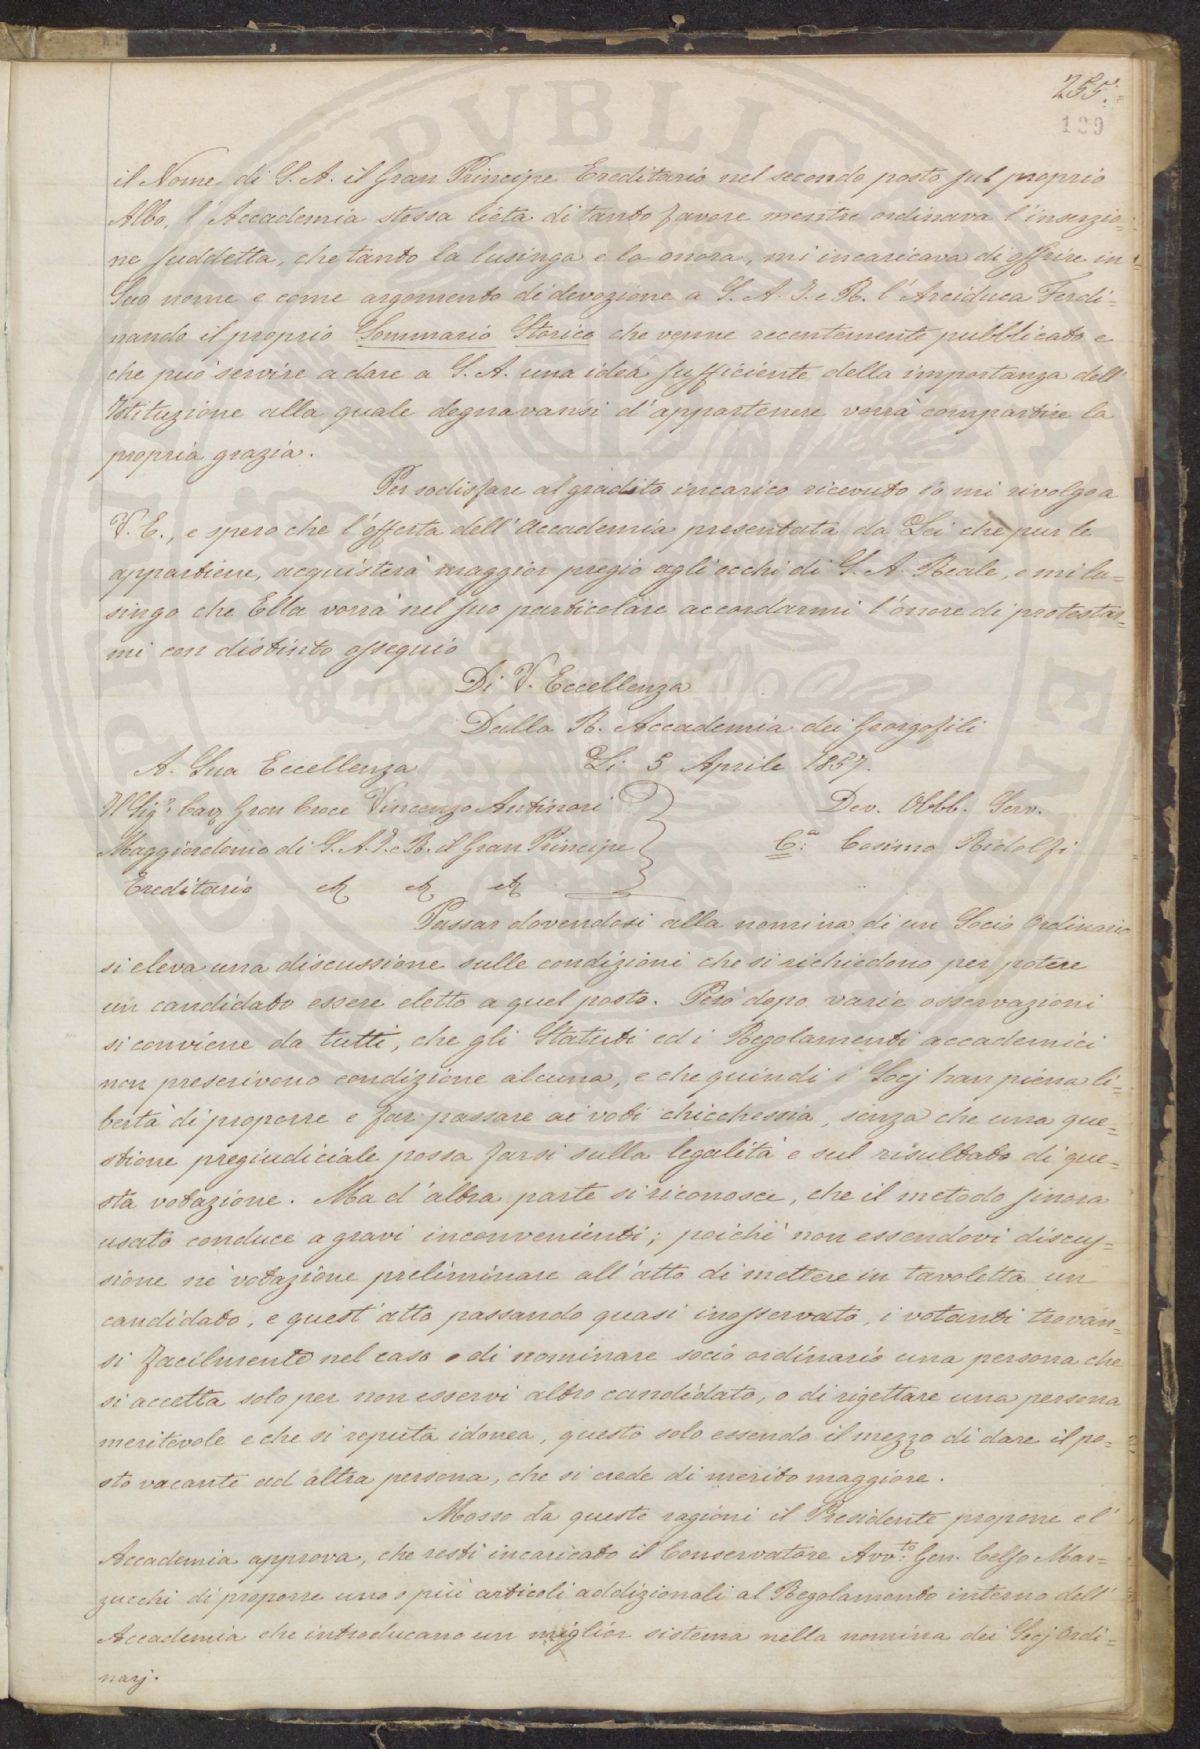 255.
129
il Nome di S. A. il Gran Principe Ereditario nel secondo posto sul proprio
Albo, l'Accademia stessa lieta di tanto favore mentre ordinava l'inserzio=
ne suddetta, che tanto la lusinga e la onora, mi incaricava di offrire in
Suo nome e come argomento di devozione a S. A. I. e R. l'Arciduca Ferdi=
nando il proprio Sommario Storico che venne recentemente pubblicato e
che può servire a dare a S. A. una idea sufficiente della importanza dell'
Istituzione alla quale degnavansi d'appartenere vorrà compartire la
propria grazia.
Per sodisfare al gradito incarico ricevuto io mi rivolgo a
V. E., e spero che l'offerta dell'Accademia presentata da Lei che pur le
appartiene, acquisterà maggior pregio agli occhi di S. A. Reale, e mi lu=
singo che Ella vorrà nel suo particolare accordarmi l'onore di protestar=
mi con distinto ossequio
Di V. Eccellenza
Dalla R. Accademia dei Georgofili
A. Sua Eccellenza
Li 5 Aprile 1857.
Il Sig.r Cav. Gran Croce Vincenzo Antinori
Dev. Obbb. Serv.
Maggiordomo di S. A. I. e R. il Gran Principe
C.a: Cosimo Ridolfi
Ereditario & & &
Passar dovendosi alla nomina di un Socio Ordinario
si eleva una discussione sulle condizioni che si richiedono per potere
un candidato essere eletto a quel posto. Però dopo varie osservazioni
si conviene da tutti, che gli Statuti ed i Regolamenti accademici
non prescrivono condizione alcuna, e che quindi i Socj han piena li=
bertà di proporre e far passare ai voti chicchessia, senza che una que=
stione pregiudiciale possa farsi sulla legalità e sul risultato di que=
sta votazione. Ma d'altra parte si riconosce, che il metodo finora
usato conduce a gravi inconvenienti; poichè non essendovi discus=
sione nè votazione preliminare all'atto di mettere in tavoletta un
candidato, e quest'atto passando quasi inosservato, i votanti trovan=
si facilmente nel caso o di nominare socio ordinario una persona che
si accetta solo per non esservi altro candidato, o di rigettare una persona
meritevole e che si reputa idonea, questo solo essendo il mezzo di dare il po=
sto vacante ad altra persona, che si crede di merito maggiore.
Mosso da queste ragioni il Presidente propone e l'
Accademia approva, che resti incaricato il Conservatore Avv.to Gen. Celso Mar=
zucchi di proporre uno o più articoli addizionali al Regolamento interno dell'
Accademia che introducano un miglior sistema nella nomina dei Socj Ordi=
narj.